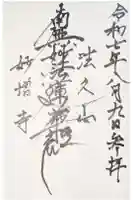 令和七年八月九日参拝
法久山
南無妙法蓮華経
妙増寺